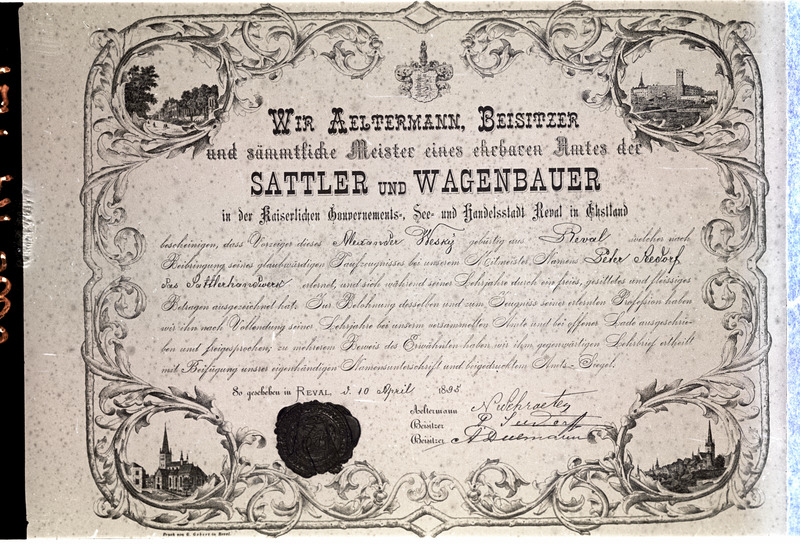 WIR AELTERMANN, BEISITZER
und sämmtliche Meister eines ehrbaren Amtes der
SATTLER UND WAGENBAUER
in der Kaiserlichen Gouvernements-, See- und Handelsstadt Reval in Ehstland
bescheinigen, dass Vorzeiger dieses Alexander Wesky gebürtig aus Reval welcher nach
Beibringung seines glaubwürdigen Taufzeugnisses bei unserem Mitmeister, Namens Peter
das Sattlerhandwerk erlernet, und sich während seiner Lehrjahre durch ein freis, gesittetes und fleissiges
Betragen ausgezeichnet hat. Zur Belohnung desselben und zum Zeugniss seiner erlernten Profession haben
wir ihn nach Vollendung seiner Lehrjahre bei unserm versammelten Amte und bei offener Lade ausgeschrie-
ben und freigesprochen; zu mehrerem Beweis des Erwähnten haben wir ihm gegenwärtigen Lehrbrief ertheilt
mit Beifügung unsrer eigenhändigen Namensunterschrift und beigedrucktem Amts-Siegel.
So geschehen in REVAL, d. 10 April 1895
Aeltermann
Beisitzer
Beisitzer
Druck von in Reval.